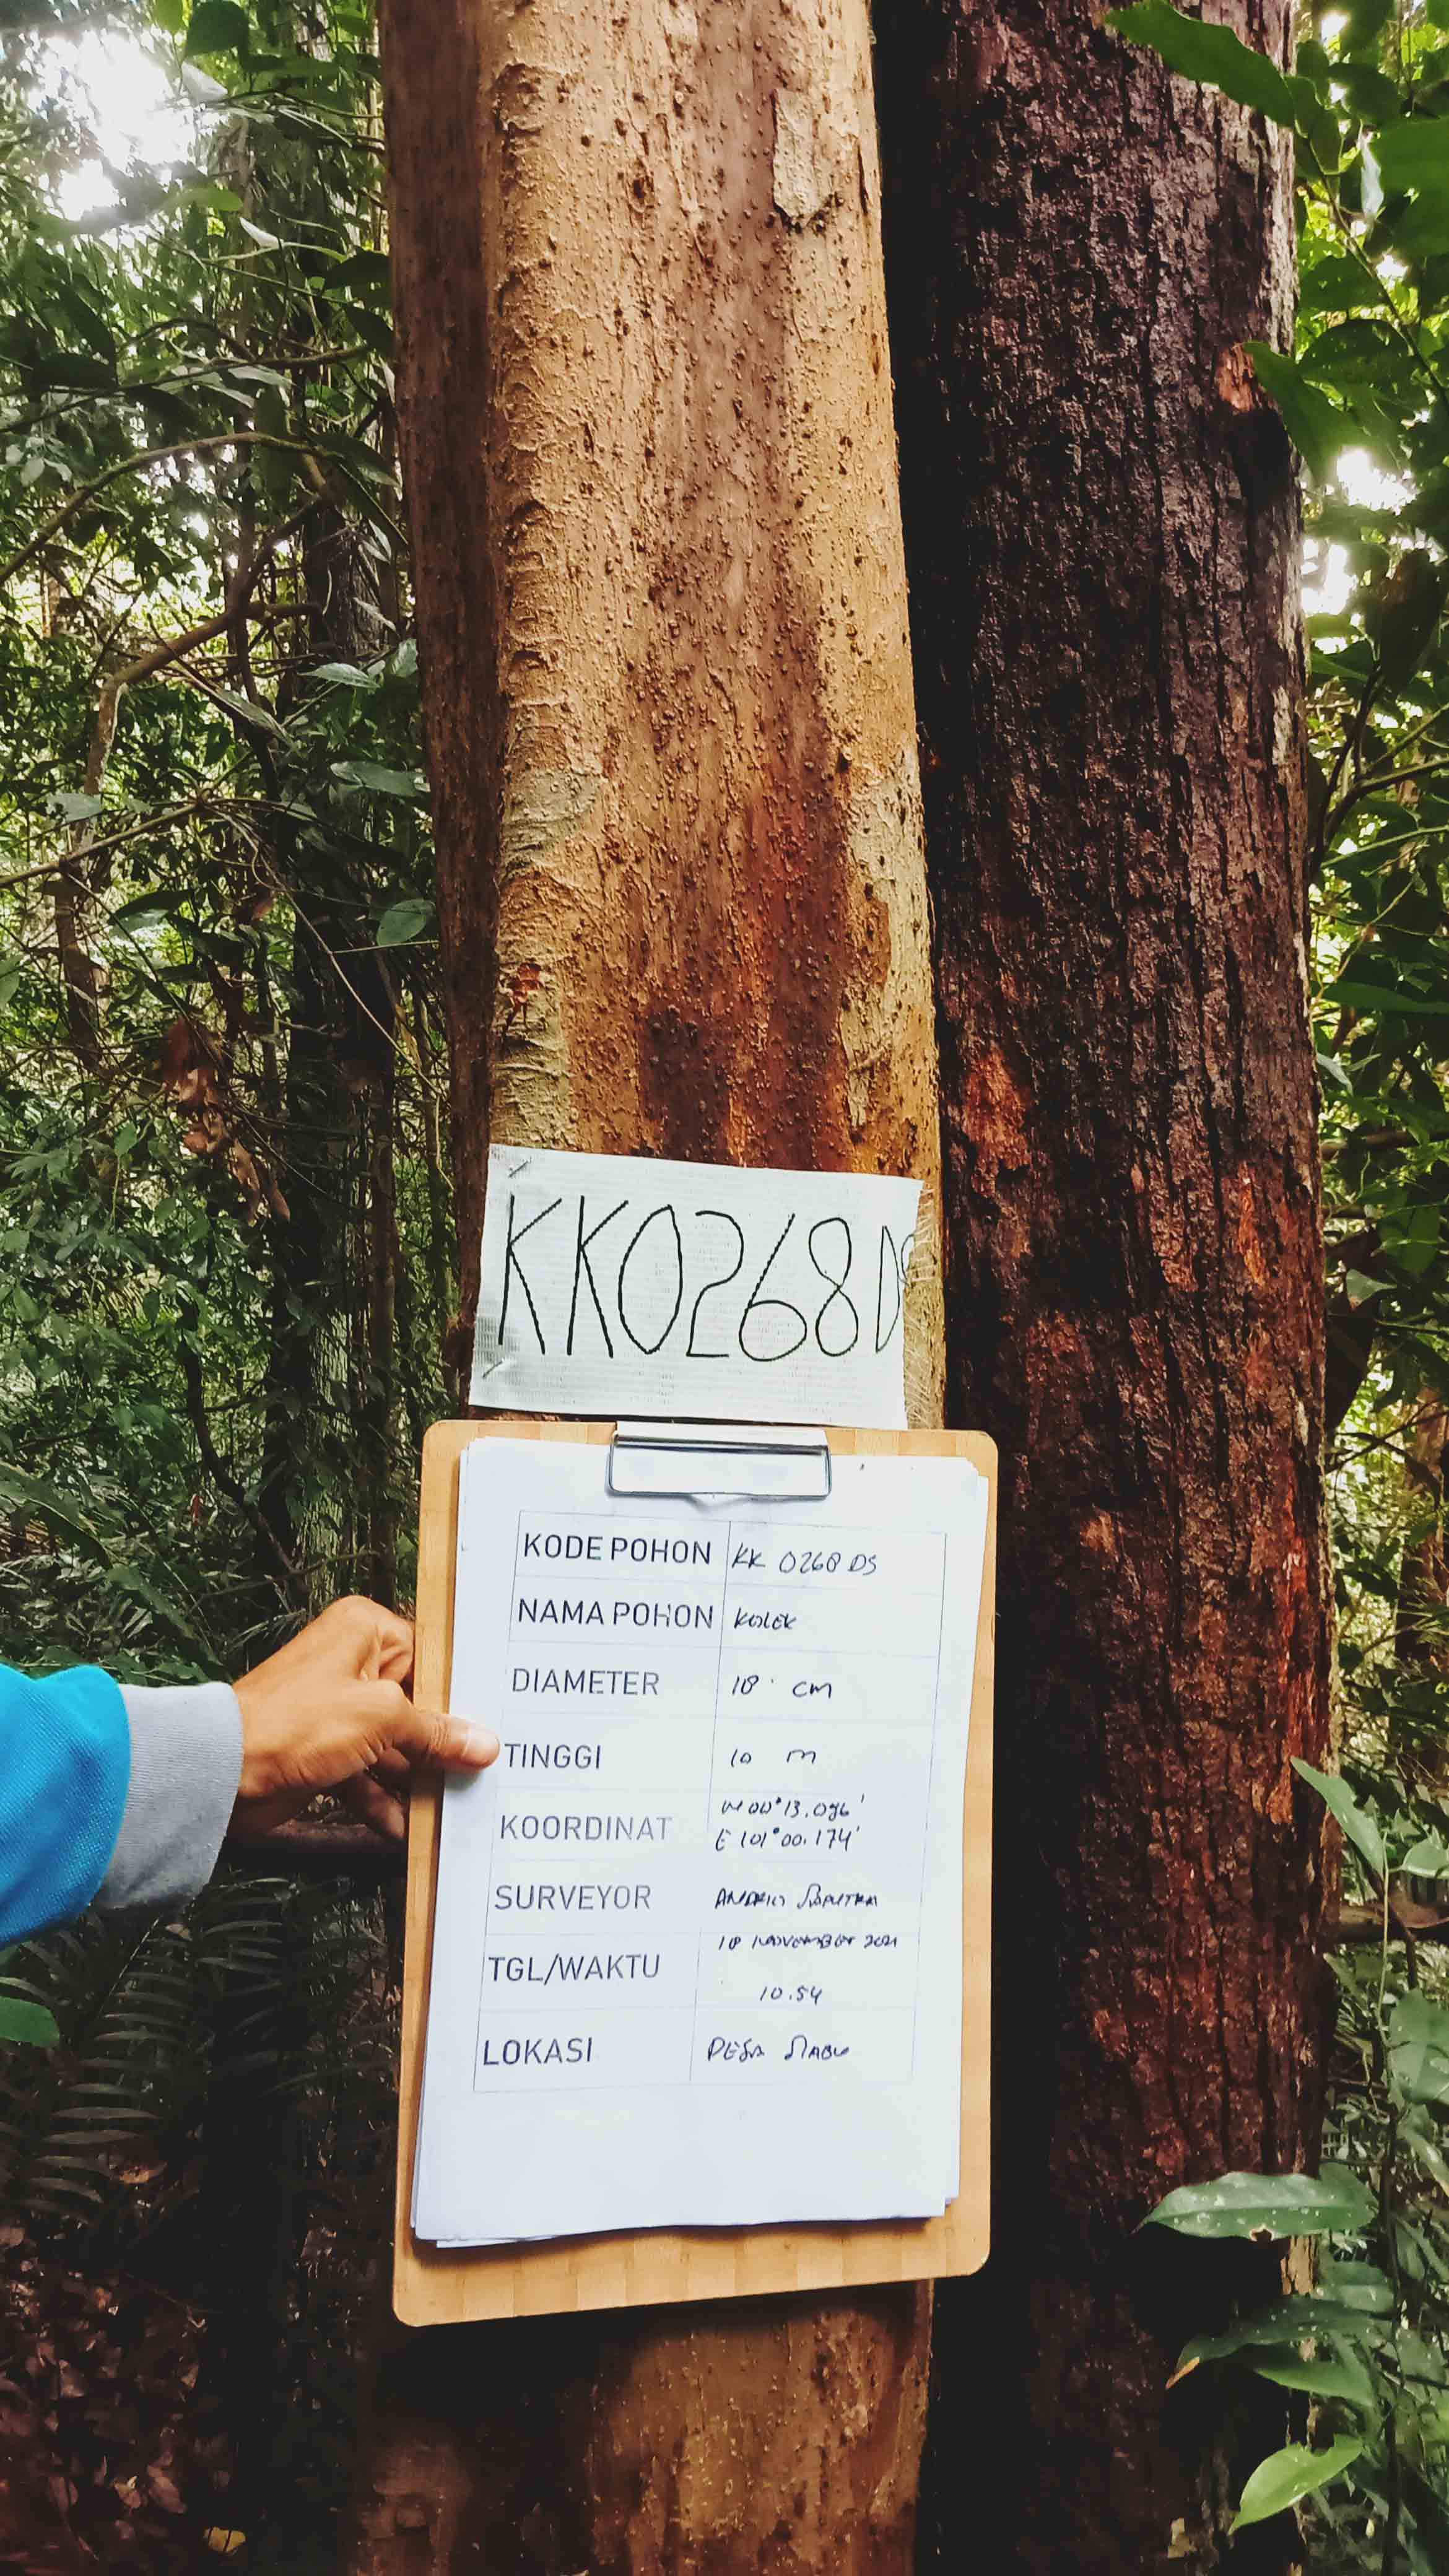 KK0268DS
KODE POHON KK 0268 DS
NAMA POHON KOLEK
DIAMETER 18 cm
TINGGI 10 m
KOORDINAT N 00° 13.096'
E 101° 00.174'
SURVEYOR
TGL/WAKTU 18 NOVEMBER 2021
10.54
LOKASI DESA SIABU